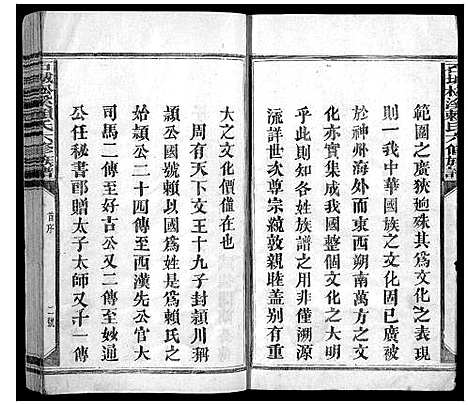 範圍之廣狹迥殊其爲文化之表現
則一我中華國族之文化固已廣被
於神州海外而東西朔南萬方之文
化亦實集成我國整個文化之大明
乎此則知各姓族譜之用非僅溯源
流詳世次尊宗統敦親睦蓋别有重
大之文化價值在也
周有天下文王十九子封穎川稱
頴公國號賴以國爲姓是爲賴氏之
始頴公二十四傳至西漢先公官大
司馬二傳至好古公又二傳至妙通
公任秘書郎贈太子太師又千一傳
首序
二號